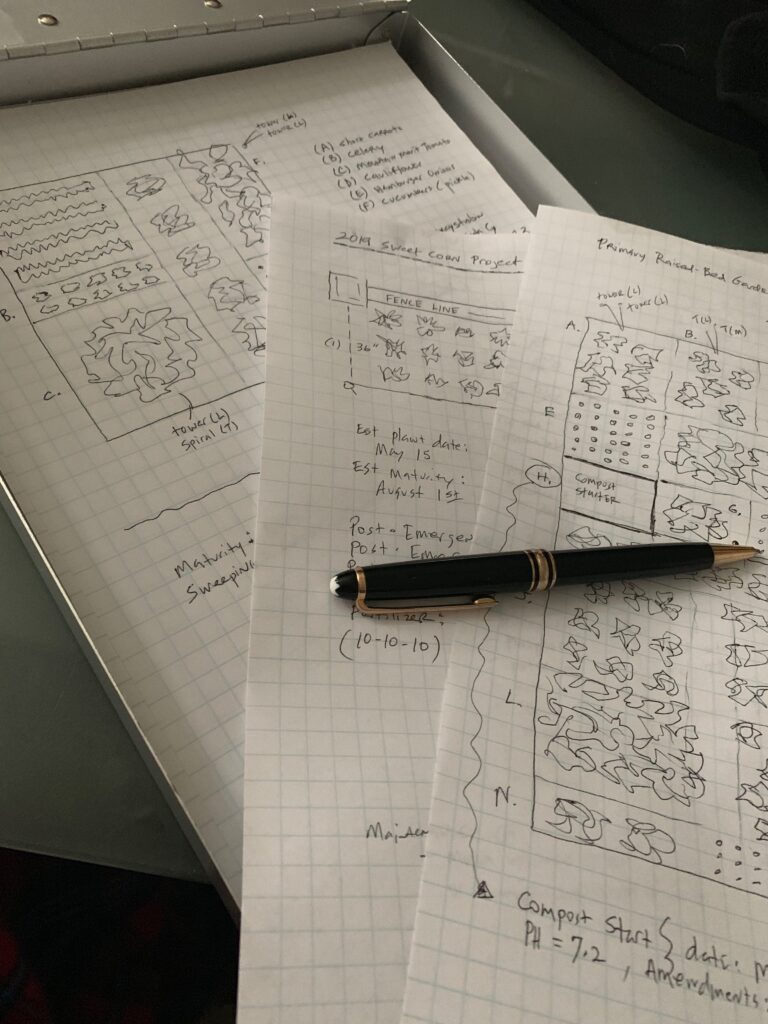 tower (L)
F.
(A) Short carrots
(B) Celery
(C) Mountain merit Tomato
(D) Cauliflower
(E) Hamburger Onions
(F) cucumbers (pickle)
B.
C.
tower (L)
Spiral (T)
Maturity:
Sweeping
2019 Sweet Corn Project
FENCE LINE
(1) 36"
Est plant date:
May 15
Est Maturity:
August 1st
Post - Emergen
Post - Emerge
Fertilizer:
(10-10-10)
Primary Raised-Bed Garde
tower (L)
tower (L)
T(L) T(m)
A.
B.
E
H.
COMPOST
STARTER
G.
L.
N.
Compost Start } date: M
PH = 7.2 , Amendments: